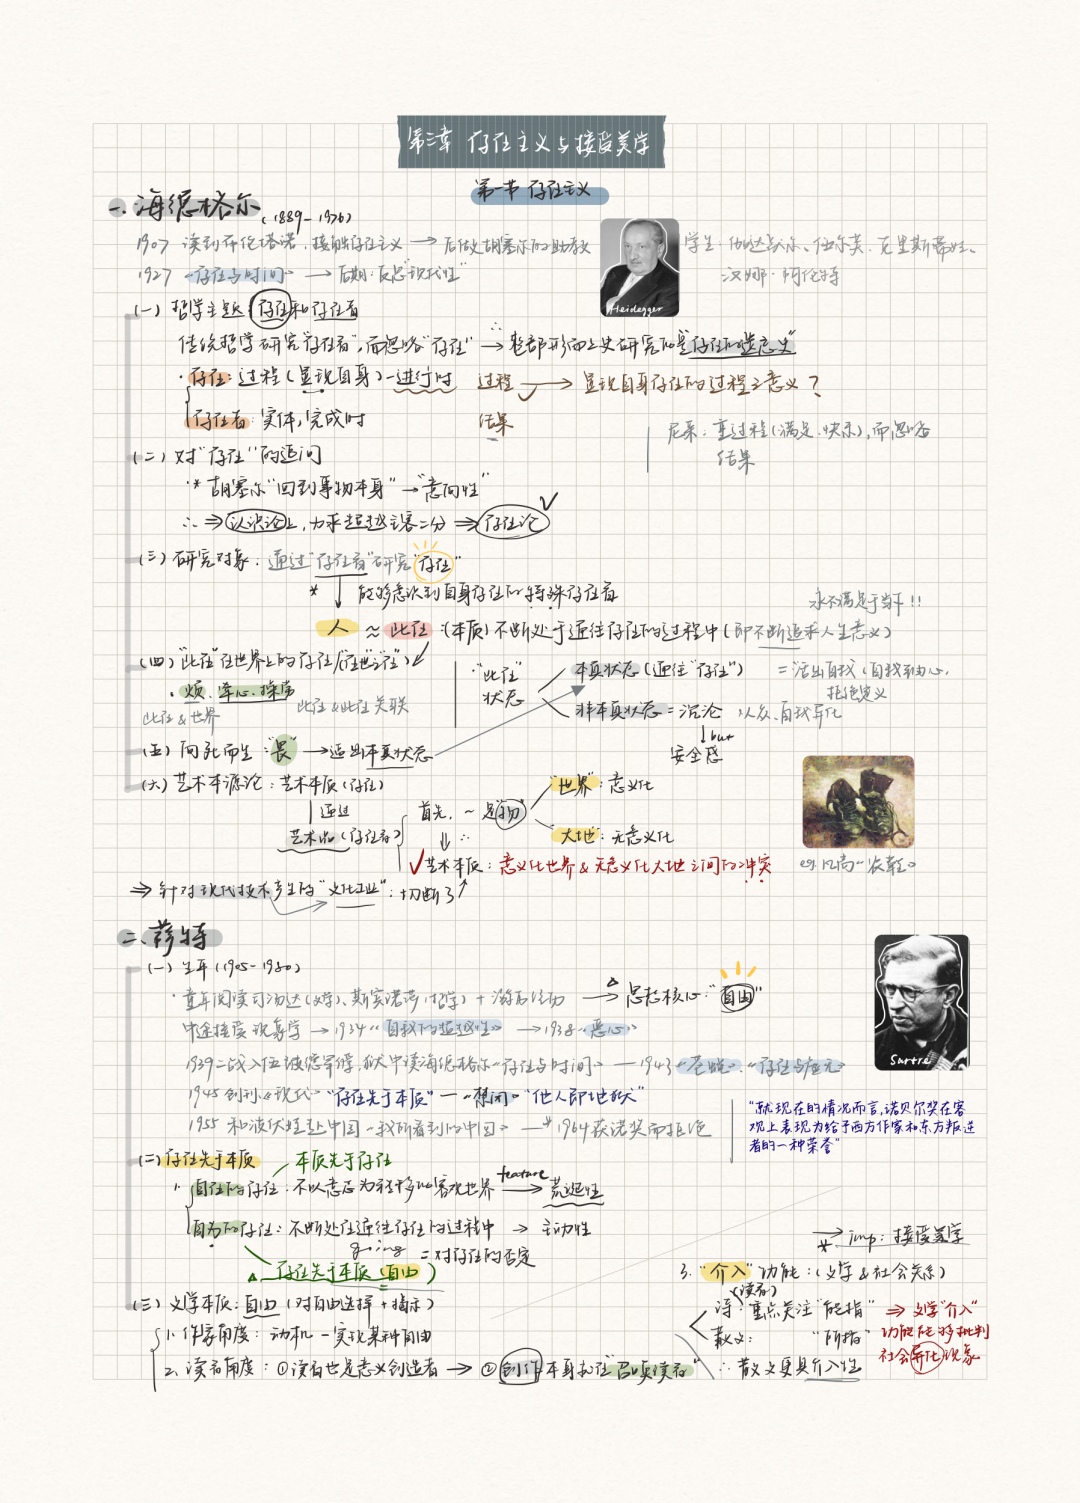 第三章 存在主义与接受美学
第一节 存在主义
一、海德格尔 (1889-1976)
1907 读到布伦塔诺,接触存在主义 → 后做胡塞尔的助教
学生:伽达默尔、伍尔芙、克里斯蒂娃、
汉娜·阿伦特
1927 《存在与时间》 → 后期:反思"现代性"
Heidegger
(一) 哲学主题:存在和存在者
传统哲学研究"存在者",而忽略"存在" → 整部形而上史研究的是"存在的遗忘史"
·存在:过程(显现自身)-进行时 过程 → 显现自身存在的过程之意义?
存在者:实体,完成时 结果
尼采:重过程(满足、快乐),而忽略
结果
(二) 对"存在"的追问
* 胡塞尔"回到事物本身" → "意向性"
∴ ⇒ 认识论上,力求超越主客二分 ⇒ 存在论 ✓
(三) 研究对象:通过"存在者"研究"存在"
* ↓ 能够意识到自身存在的特殊存在者
永不满足于当下!!
人 ≈ 此在:(本质)不断处于通往存在的过程中(即不断追求人生意义)
(四) "此在"在世界上的存在("在世之在")
·烦:牵心、操劳
此在&世界
此在&此在关联
"此在"
状态
本真状态(通往"存在") = 活出自我(自我为中心,
拒绝定义
非本真状态 = 沉沦 以众、自我异化
↓but
安全感
(五) 向死而生:"畏" → 逼出本真状态
(六) 艺术本源论:艺术本质(存在)
通过
艺术品(存在者)
首先,~是"物"
"世界":意义化
"大地":无意义化
⇓ ∴
✓艺术本质:意义化世界&无意义化大地之间的冲突
eg.凡高~农鞋
⇒ 针对现代技术产生的"文化工业":切断了↑
二、萨特
(一) 生平(1905-1980)
·童年阅读司汤达(文学)、斯宾诺莎(哲学) + → 思想核心:"自由"
中途接受现象学 → 1934《自我的超越性》 → 1938《恶心》
Sartre
1939 二战入伍被德军俘,狱中读海德格尔《存在与时间》 — 1943《苍蝇》、《存在与虚无》
1945 创刊《现代》 "存在先于本质" — 《禁闭》"他人即地狱"
1955 和波伏娃赴中国《我所看到的中国》 — * 1964获诺奖而拒绝
"就现在的情况而言,诺贝尔奖在客
观上表现为给予西方作家和东方叛逆
者的一种荣誉"
(二) 存在先于本质 本质先于存在
1. 自在的存在:不以意志为转移的客观世界 feature → 荒诞性
自为的存在:不断处在通往存在的过程中 → 主动性
going = 对存在的否定
△ 存在先于本质(自由)
(三) 文学本质:自由(对自由选择+揭示)
1. 作家角度:动机-实现某种自由
2. 读者角度:①读者也是意义创造者 → ②创作本身就在"召唤读者"
* → imp:接受美学
3."介入"功能:(文学&社会关系)
(读者)
诗:重点关注"能指"
散文: "所指"
∴ 散文更具介入性
⇒ 文学"介入"
功能能够批判
社会异化现象